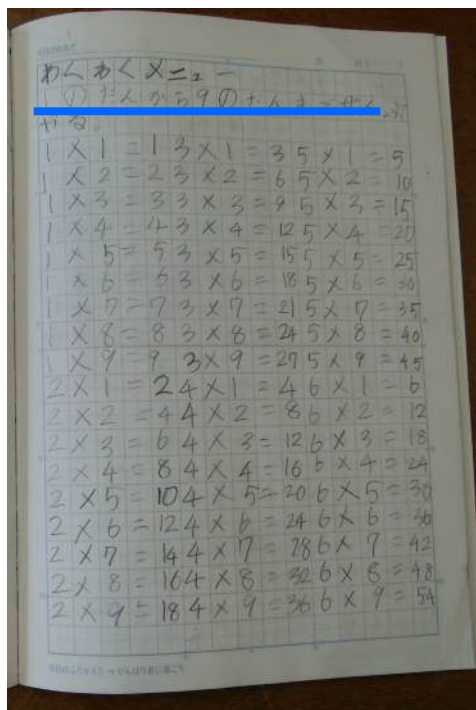 わくわくメニュー
1のだんから9のだんまでぜん
やる。
1×1=1 3×1=3 5×1=5
1×2=2 3×2=6 5×2=10
1×3=3 3×3=9 5×3=15
1×4=4 3×4=12 5×4=20
1×5=5 3×5=15 5×5=25
1×6=6 3×6=18 5×6=30
1×7=7 3×7=21 5×7=35
1×8=8 3×8=24 5×8=40
1×9=9 3×9=27 5×9=45
2×1=2 4×1=4 6×1=6
2×2=4 4×2=8 6×2=12
2×3=6 4×3=12 6×3=18
2×4=8 4×4=16 6×4=24
2×5=10 4×5=20 6×5=30
2×6=12 4×6=24 6×6=36
2×7=14 4×7=28 6×7=42
2×8=16 4×8=32 6×8=48
2×9=18 4×9=36 6×9=54
今日のふりかえり→がんばり表に書こう